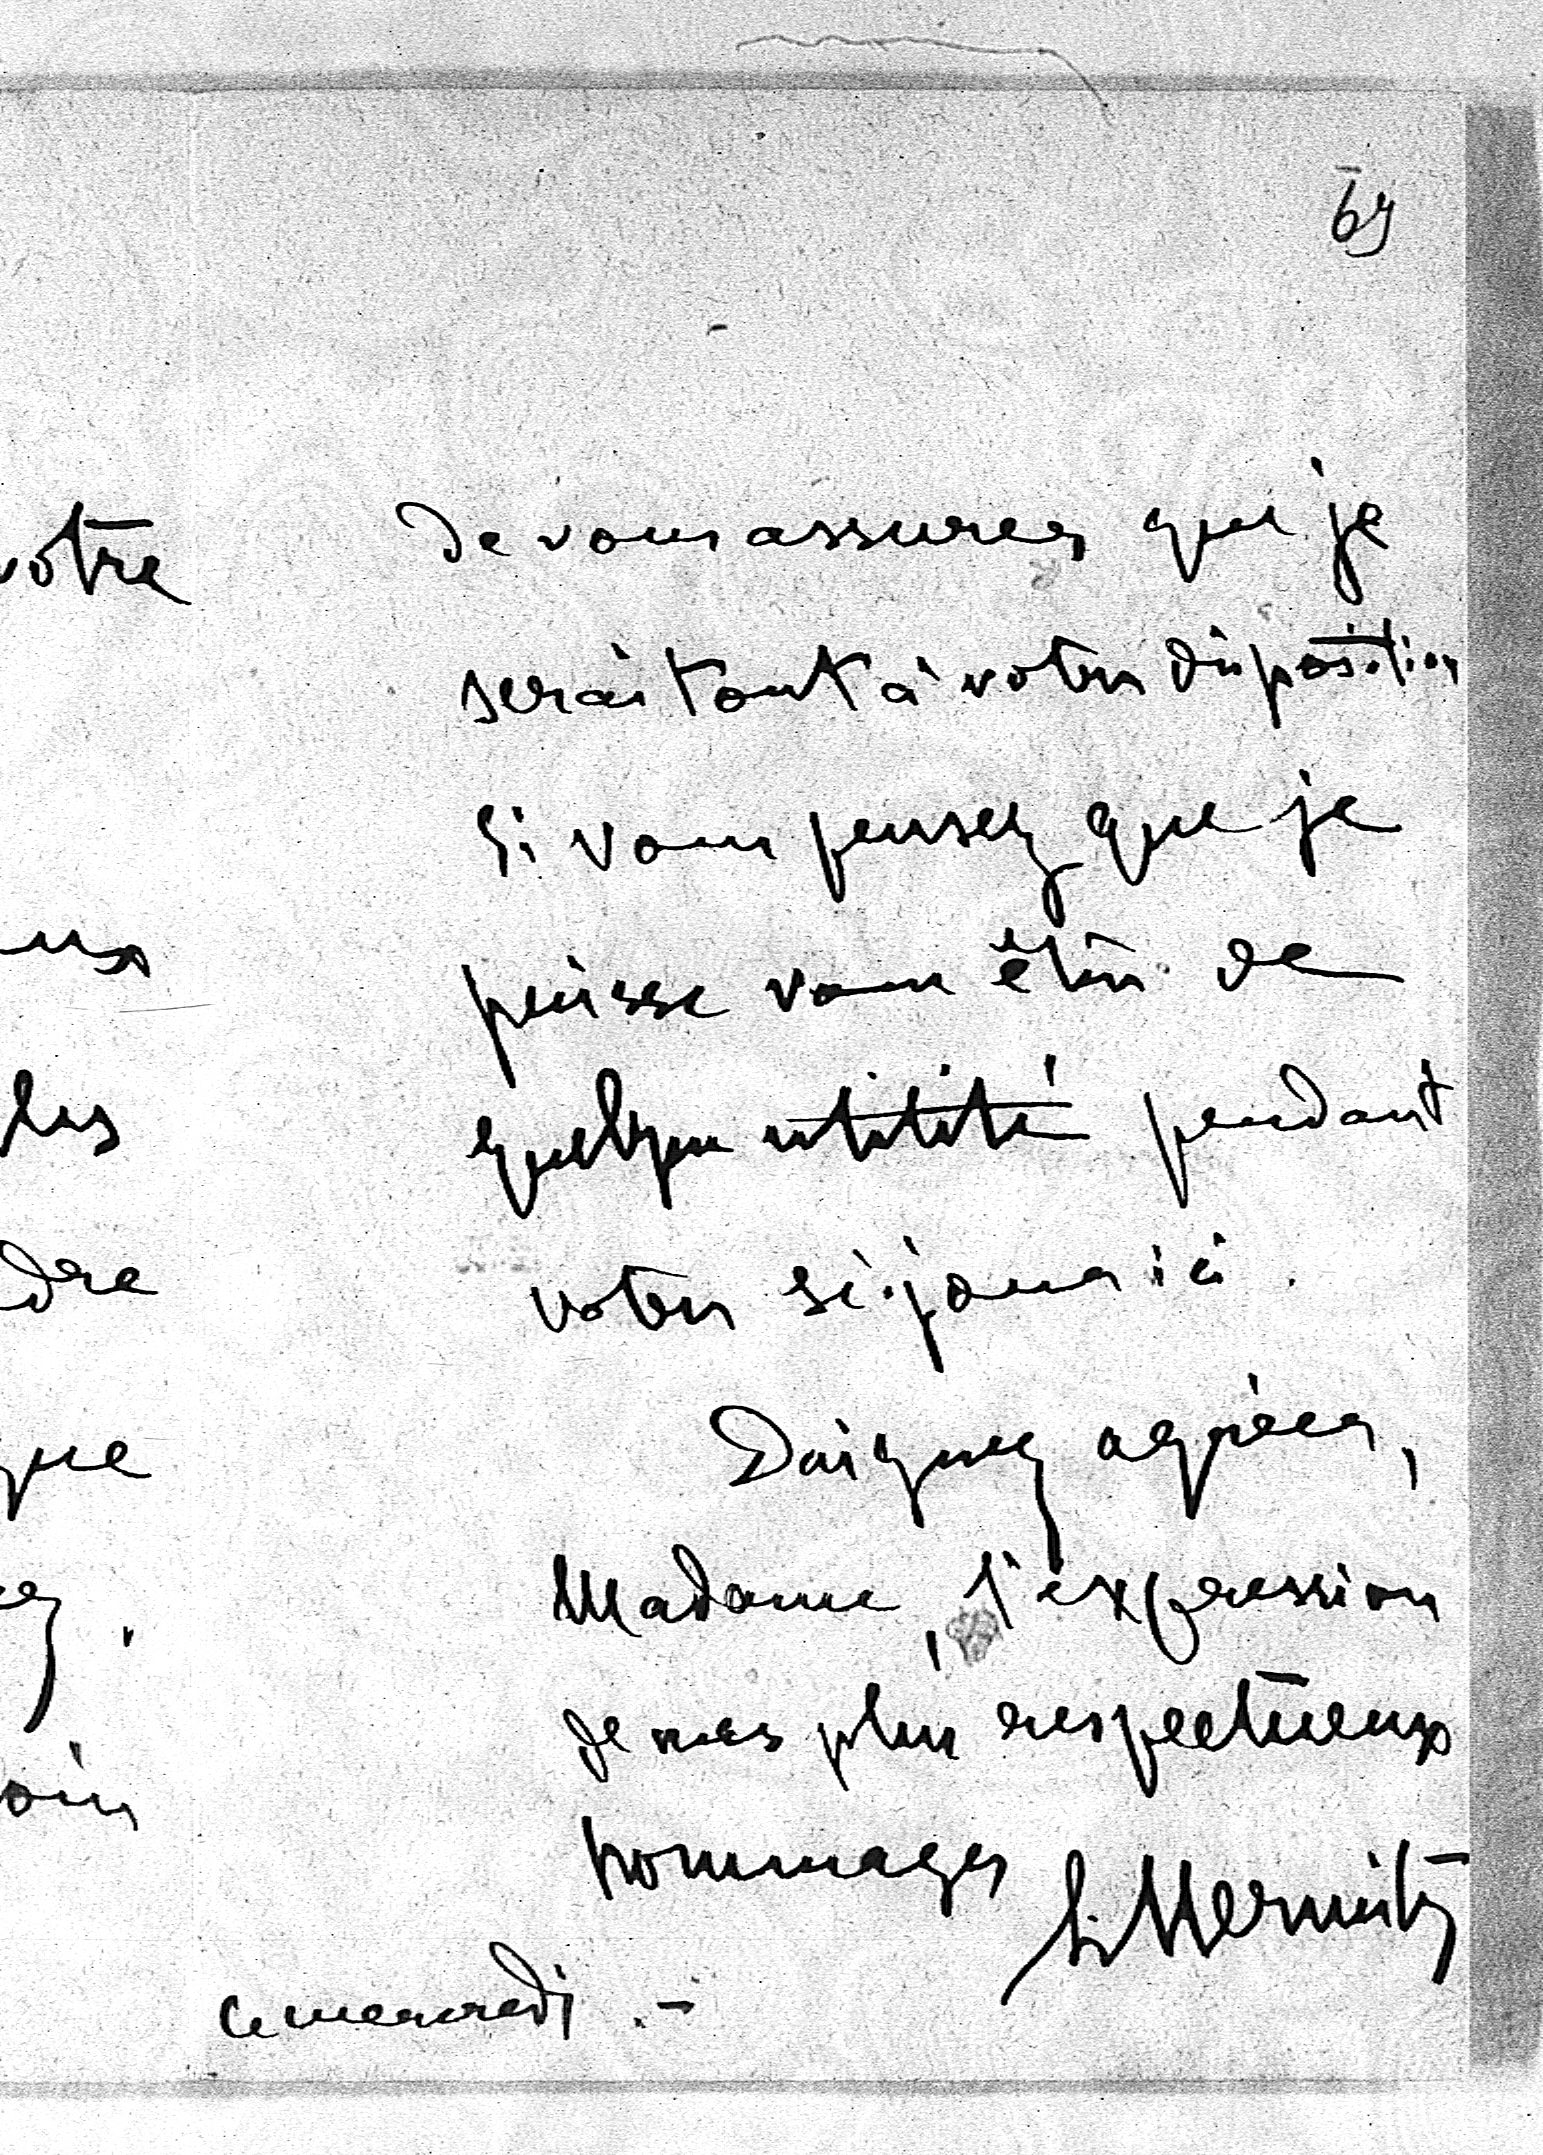 69
votre
de vous assurer que je
serai tout à votre disposition
si vous pensez que je
puisse vous être de
quelque utilité pendant
votre séjour ici.
Daignez agréer,
Madame, l'expression
de mes plus respectueux
hommages
ce mercredi.-
les
dre
que